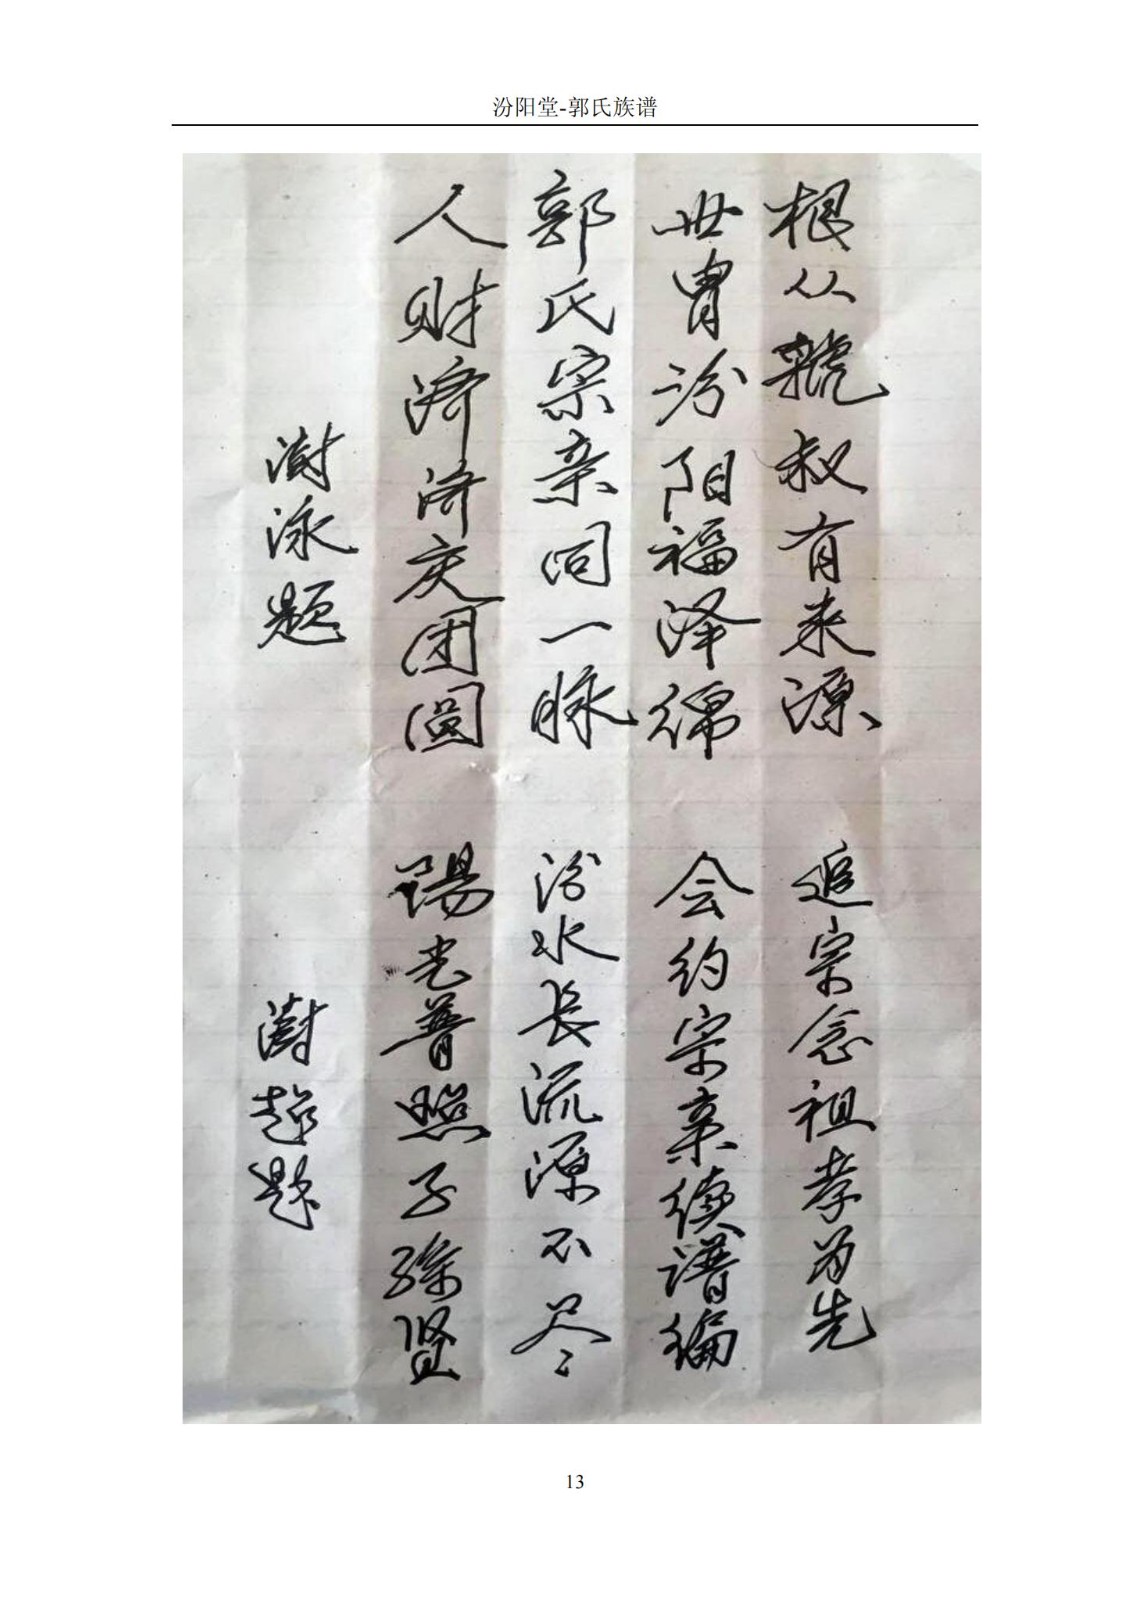 汾阳堂-郭氏族谱
根从虢叔有来源
世胄汾阳福泽绵
郭氏宗亲同一脉
人财济济庆团圆
澍泳题
追宗念祖孝为先
会约宗亲续谱编
汾水长流源不尽
陽光普照子孫贤
澍超题
13